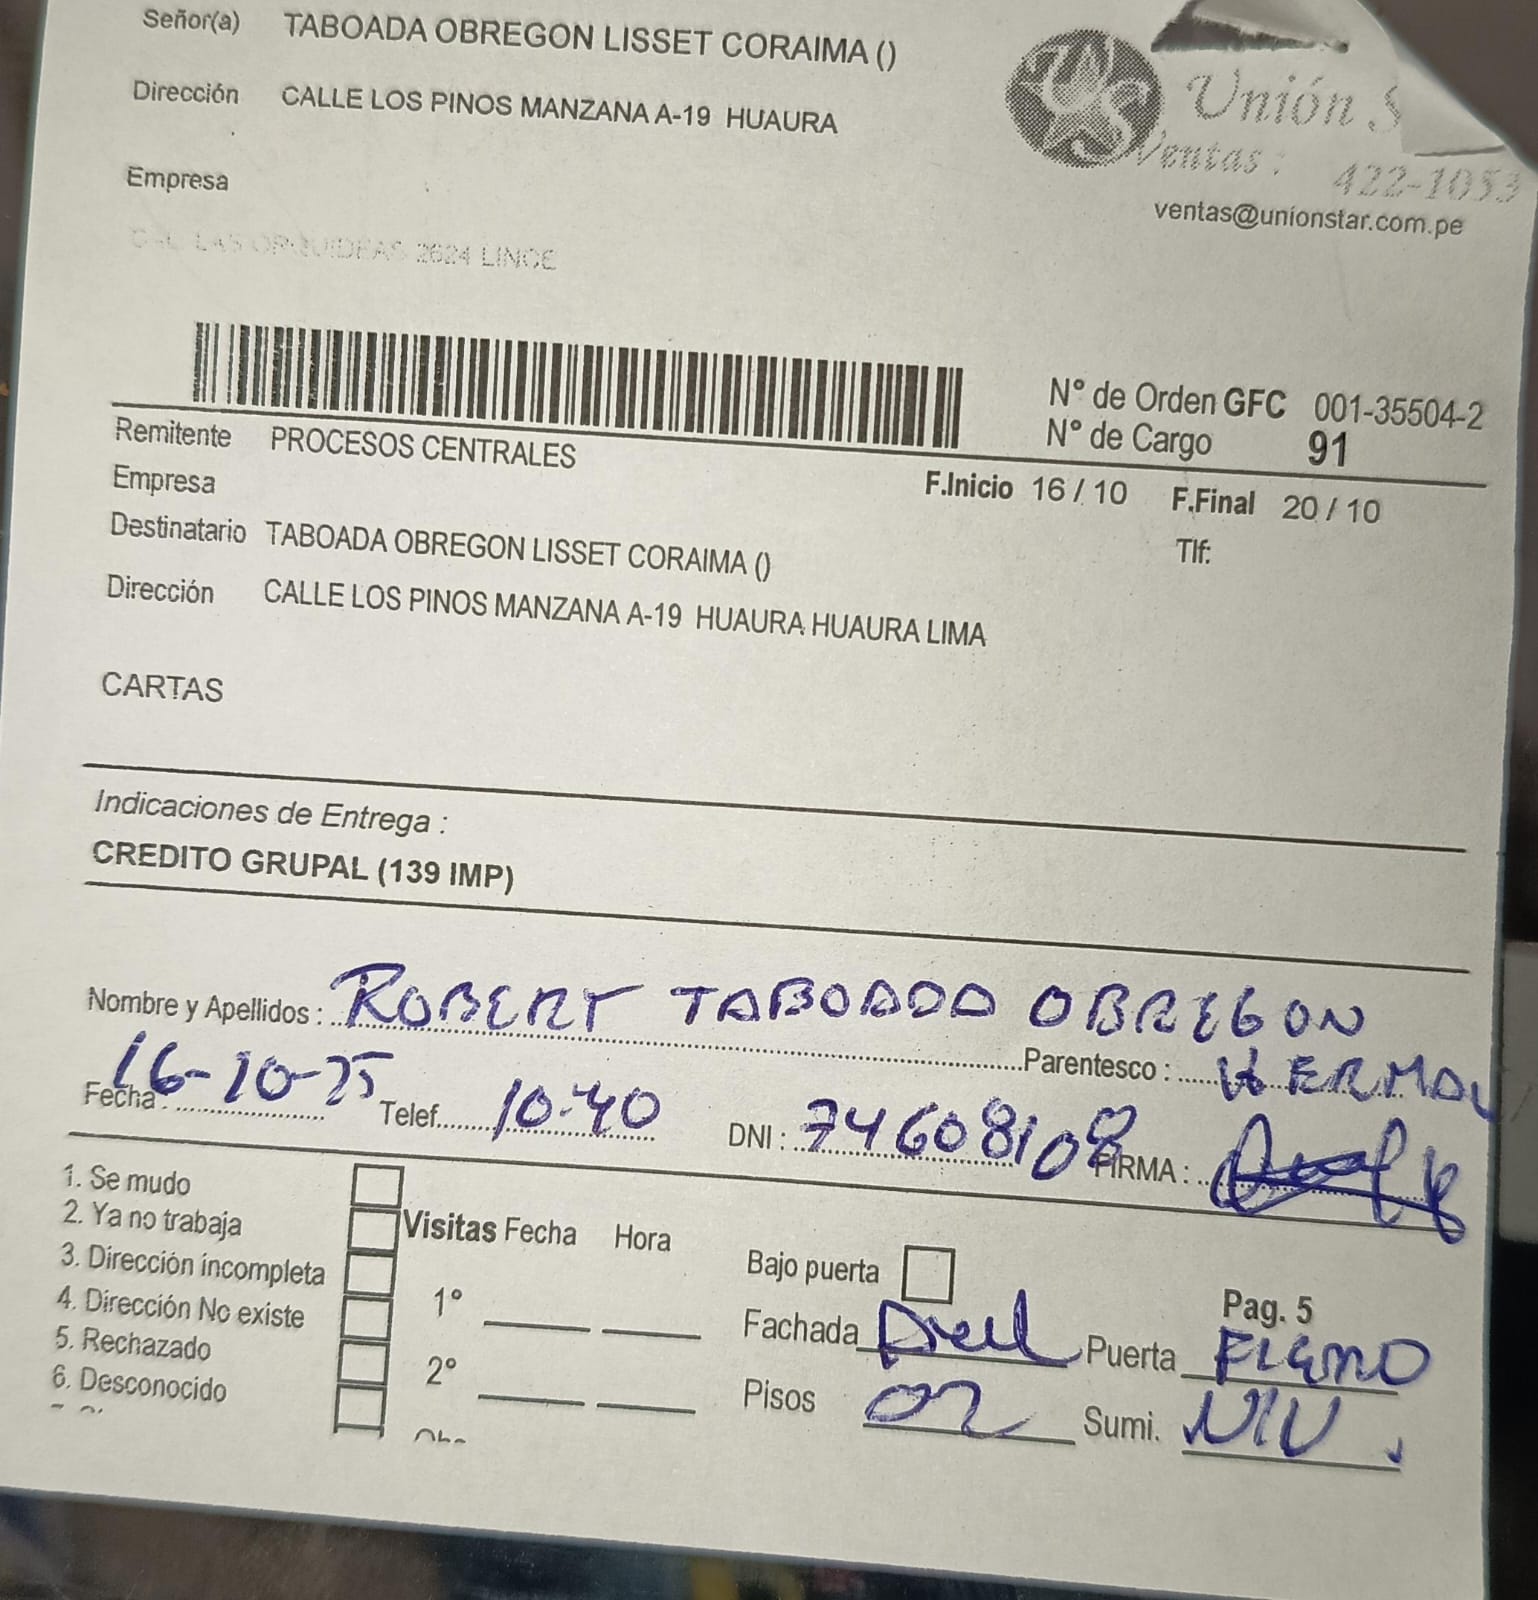 Señor(a) TABOADA OBREGON LISSET CORAIMA ()
Dirección CALLE LOS PINOS MANZANA A-19 HUAURA
Unión S
Ventas: 422-1053
ventas@unionstar.com.pe
Empresa
CAL LAS ORQUIDEAS 2624 LINCE
N° de Orden GFC 001-35504-2
N° de Cargo 91
Remitente PROCESOS CENTRALES
Empresa
F.Inicio 16 / 10 F.Final 20 / 10
Destinatario TABOADA OBREGON LISSET CORAIMA ()
Tlf:
Dirección CALLE LOS PINOS MANZANA A-19 HUAURA HUAURA LIMA
CARTAS
Indicaciones de Entrega :
CREDITO GRUPAL (139 IMP)
Nombre y Apellidos : ROBERT TABOADA OBREGON
Parentesco : HERMANO
Fecha : 16-10-25 Telef. 10:40 DNI : 74608108 FIRMA :
1. Se mudo
2. Ya no trabaja
3. Dirección incompleta
4. Dirección No existe
5. Rechazado
6. Desconocido
Visitas Fecha Hora
1°
2°
Bajo puerta
Pag. 5
Fachada Puerta FIERRO
Pisos 02 Sumi.